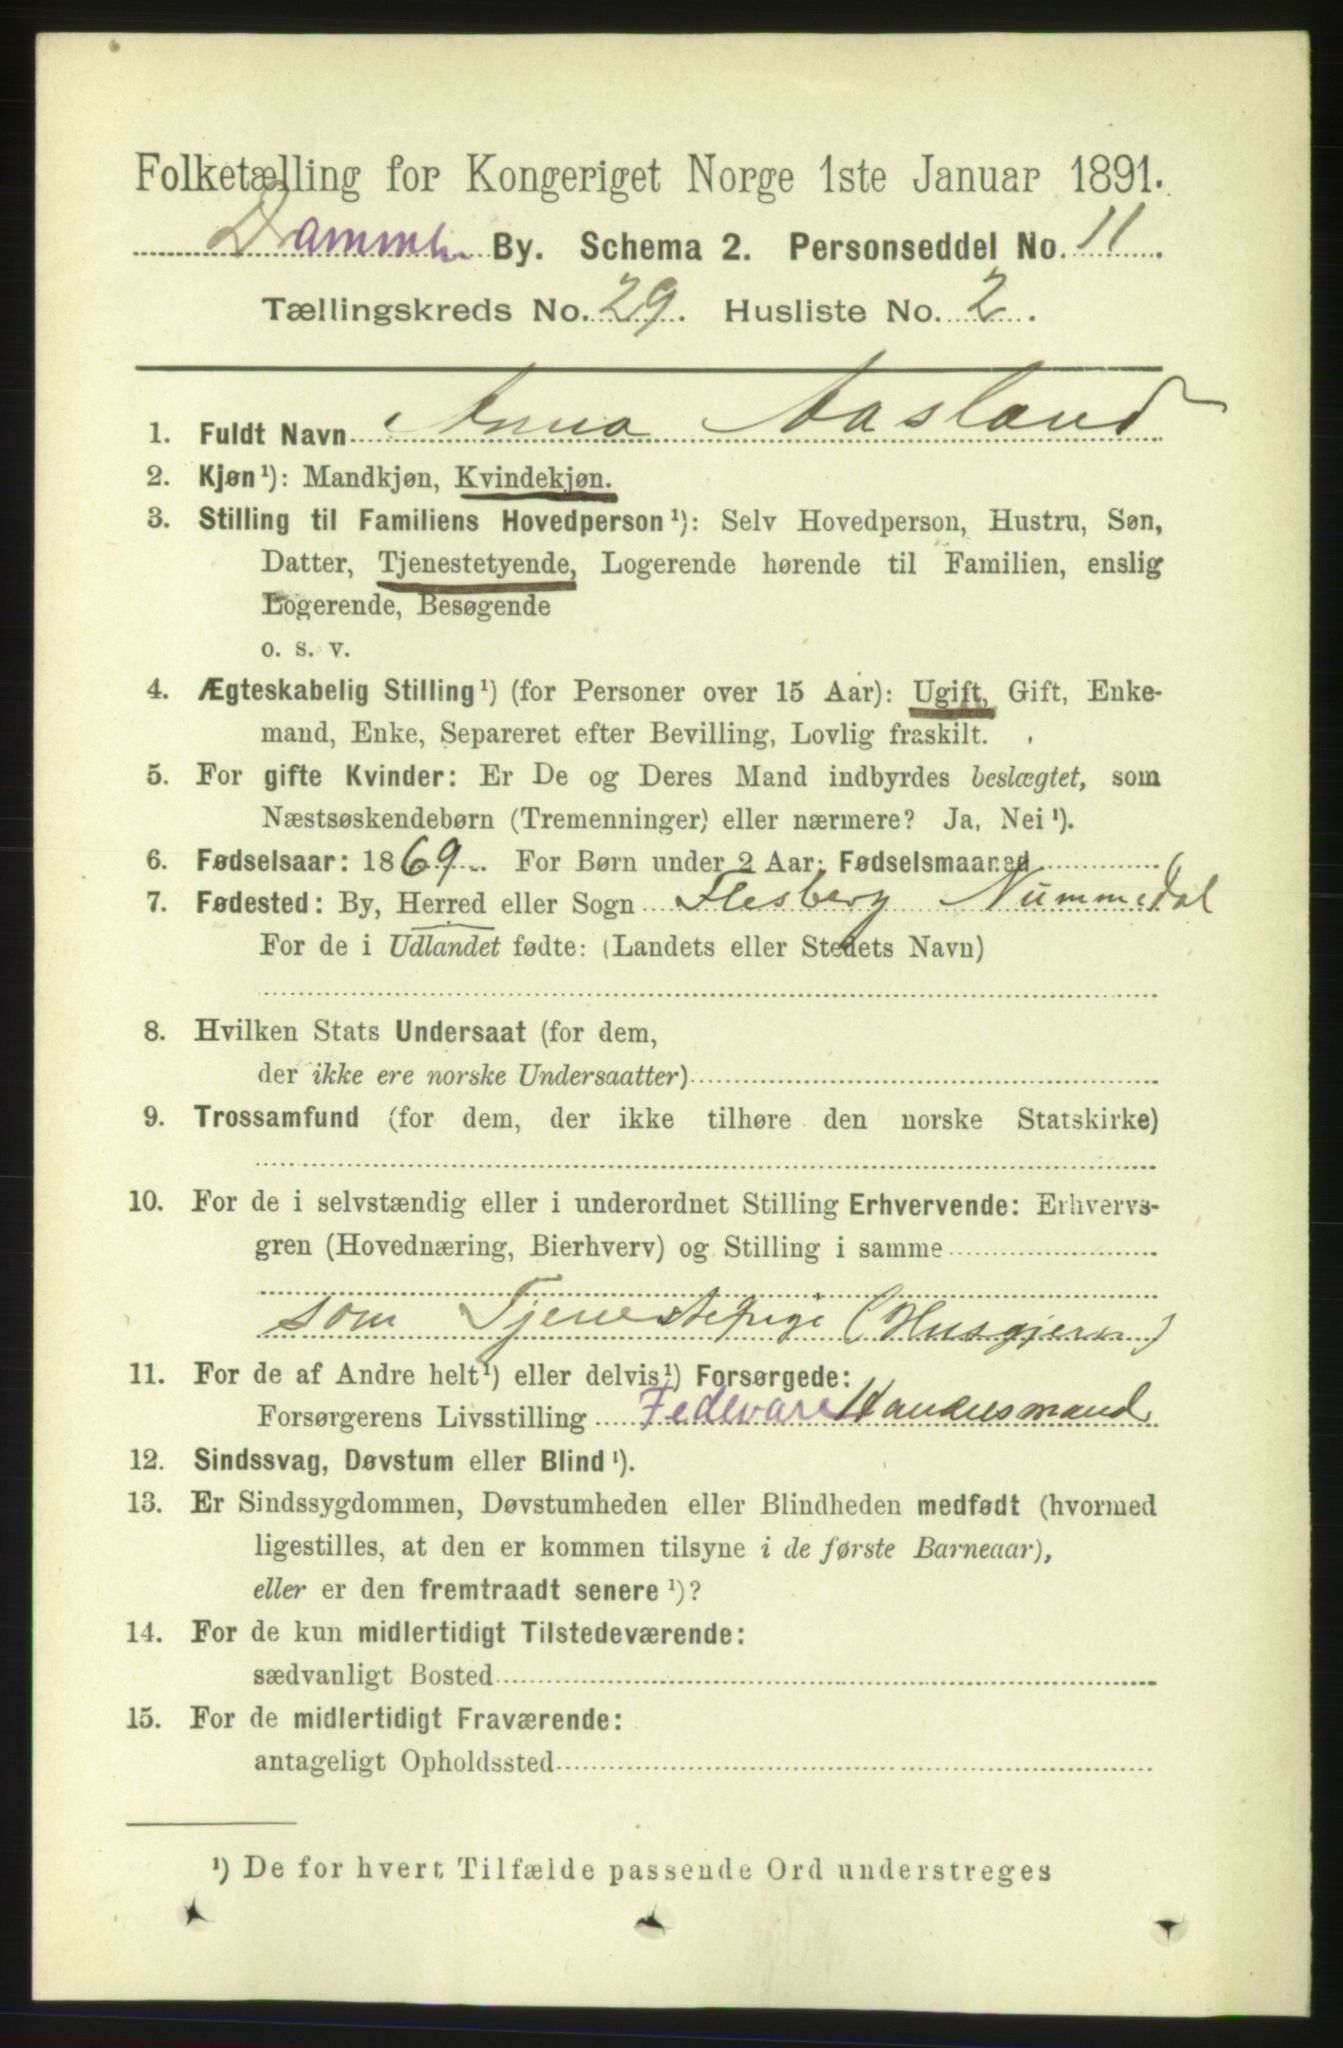 Folketælling for Kongeriget Norge 1ste Januar 1891.
Drammen By. Schema 2. Personseddel No. 11
Tællingskreds No. 29. Husliste No. 2.
1. Fuldt Navn Anna Aasland
2. Kjøn¹): Mandkjøn, Kvindekjøn.
3. Stilling til Familiens Hovedperson¹): Selv Hovedperson, Hustru, Søn,
Datter, Tjenestetyende, Logerende hørende til Familien, enslig
Logerende, Besøgende
o. s. v.
4. Ægteskabelig Stilling¹) (for Personer over 15 Aar): Ugift, Gift, Enke-
mand, Enke, Separeret efter Bevilling, Lovlig fraskilt.
5. For gifte Kvinder: Er De og Deres Mand indbyrdes beslægtet, som
Næstsøskendebørn (Tremenninger) eller nærmere? Ja, Nei¹).
6. Fødselsaar: 1869. For Børn under 2 Aar: Fødselsmaaned
7. Fødested: By, Herred eller Sogn Flesberg Nummedal
For de i Udlandet fødte: (Landets eller Stedets Navn)
8. Hvilken Stats Undersaat (for dem,
der ikke ere norske Undersaatter)
9. Trossamfund (for dem, der ikke tilhøre den norske Statskirke)
10. For de i selvstændig eller i underordnet Stilling Erhvervende: Erhvervs-
gren (Hovednæring, Bierhverv) og Stilling i samme
som Tjenestepige (Husgjern)
11. For de af Andre helt¹) eller delvis¹) Forsørgede:
Forsørgerens Livsstilling Fedevare Handelsmand
12. Sindssvag, Døvstum eller Blind¹).
13. Er Sindssygdommen, Døvstumheden eller Blindheden medfødt (hvormed
ligestilles, at den er kommen tilsyne i de første Barneaar),
eller er den fremtraadt senere¹)?
14. For de kun midlertidigt Tilstedeværende:
sædvanligt Bosted
15. For de midlertidigt Fraværende:
antageligt Opholdssted
¹) De for hvert Tilfælde passende Ord understreges